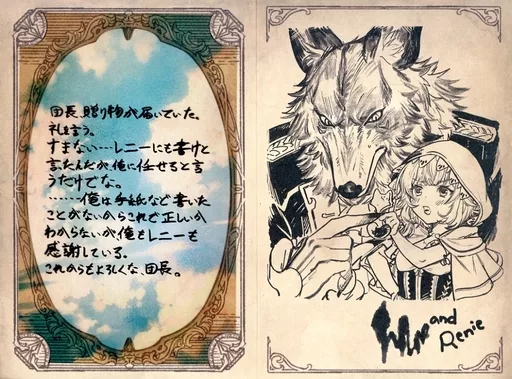 団長、贈り物が届いていた。
礼を言う。
すまない…レニーにも書けと
言たんだが、俺に任せると言
うだけでな。
……俺は手紙など書いた
ことがないからこれで正しいか
わからないが、俺もレニーも
感謝している。
これからもよろしくな、団長。
and
Renie